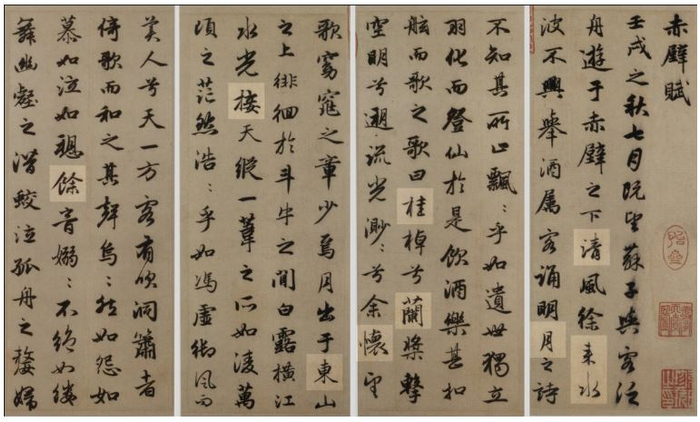 赤壁賦
壬戌之秋七月既望蘇子與客泛
舟遊于赤壁之下清風徐來水
波不興舉酒屬客誦明月之詩
不知其所止飄〻乎如遺世獨立
羽化而登仙於是飲酒樂甚扣
舷而歌之歌曰桂棹兮蘭槳擊
空明兮遡流光渺〻兮余懷望
歌窈窕之章少焉月出于東山
之上徘徊於斗牛之間白露橫江
水光接天縱一葦之所如凌萬
頃之茫然浩〻乎如馮虛御風而
美人兮天一方客有吹洞簫者
倚歌而和之其聲烏〻然如怨如
慕如泣如愬餘音嫋〻不絕如縷
舞幽壑之潛蛟泣孤舟之嫠婦